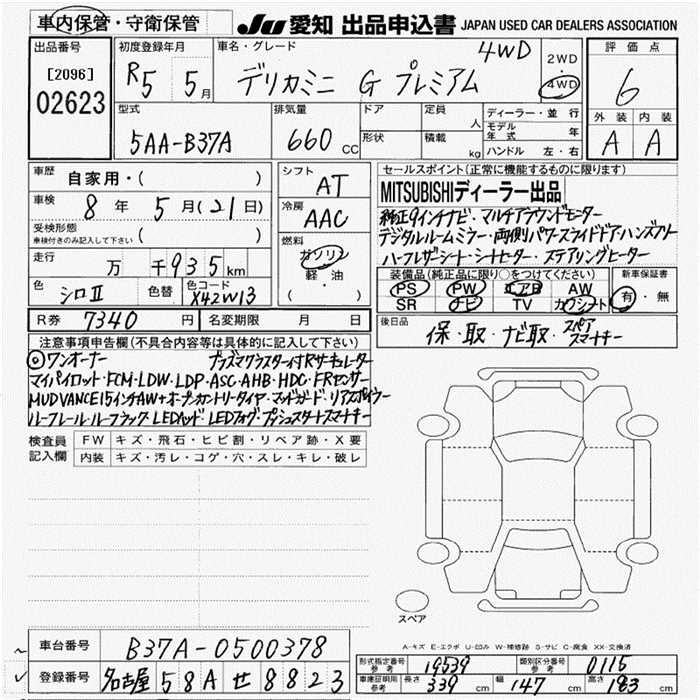 車内保管・守衛保管
JU 愛知 出品申込書 JAPAN USED CAR DEALERS ASSOCIATION
出品番号
[2096]
02623
初度登録年月
R5 5月
車名・グレード
4WD
デリカミニ G プレミアム
2WD
・
4WD
評価点
6
外装 内装
A A
型式
5AA-B37A
排気量
660 cc
ドア
形状
定員 人
積載 kg
ディーラー・並行
モデル年式 年
ハンドル 左・右
車歴 自家用・( )
車検 8年 5月(21日)
受検形態
車検付きのみ記入して下さい ( )
走行 万 千935km
色 シロⅡ 色替 色コード X42W13
シフト
AT
冷房
AAC
燃料
ガソリン
軽・油
( )
セールスポイント(正常に機能するものに限ります)
MITSUBISHIディーラー出品
純正9インチナビ・マルチアラウンドモニター
デジタルルームミラー・両側パワースライドドア・ハンズフリー
ハーフレザーシート・シートヒーター・ステアリングヒーター
装備品(純正品に限り○をつけてください)
PS PW エアB AW
SR ナビ TV カワシート
新車保証書
有・無
R券 7340円 名変期限 月 日
後日品 保・取・ナビ取・スペアスマートキー
注意事項申告欄(不具合内容等は具体的に記入して下さい)
◎ワンオーナー プラズマクラスター付Rサーキュレーター
マイパイロット・FCM・LDW・LDP・ASC・AHB・HDC・FRセンサー
MUDVANCE15インチAW+オープンカントリータイヤ・マッドガード・リアスポイラー
ルーフレール・ルーフラック・LEDヘッド・LEDフォグ・プッシュスタートスマートキー
検査員記入欄
FW キズ・飛石・ヒビ割・リペア跡・X要
内装 キズ・汚レ・コゲ・穴・スレ・キレ・破レ
スペア
A-キズ E-エクボ U-凹み W-補修跡 S-サビ C-腐食 XX-交換済
車台番号 B37A-0500378
登録番号 名古屋 58A せ 8823
形式指定番号 参考 19539 類別区分番号 参考 0116
車庫証明用 参考 長さ 339 cm 幅 147 cm 高さ 183 cm